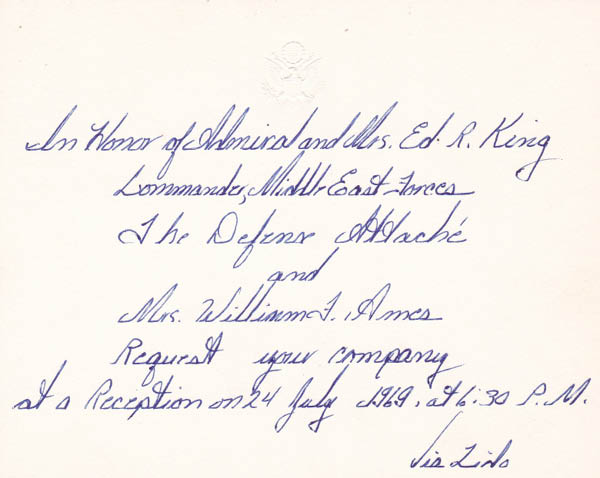 In Honor of Admiral and Mrs. Ed. R. King
Commander, Middle East Forces
The Defense Attaché
and
Mrs. William F. Ames
Request your company
at a Reception on 24 July 1969, at 6:30 P.M.
Via